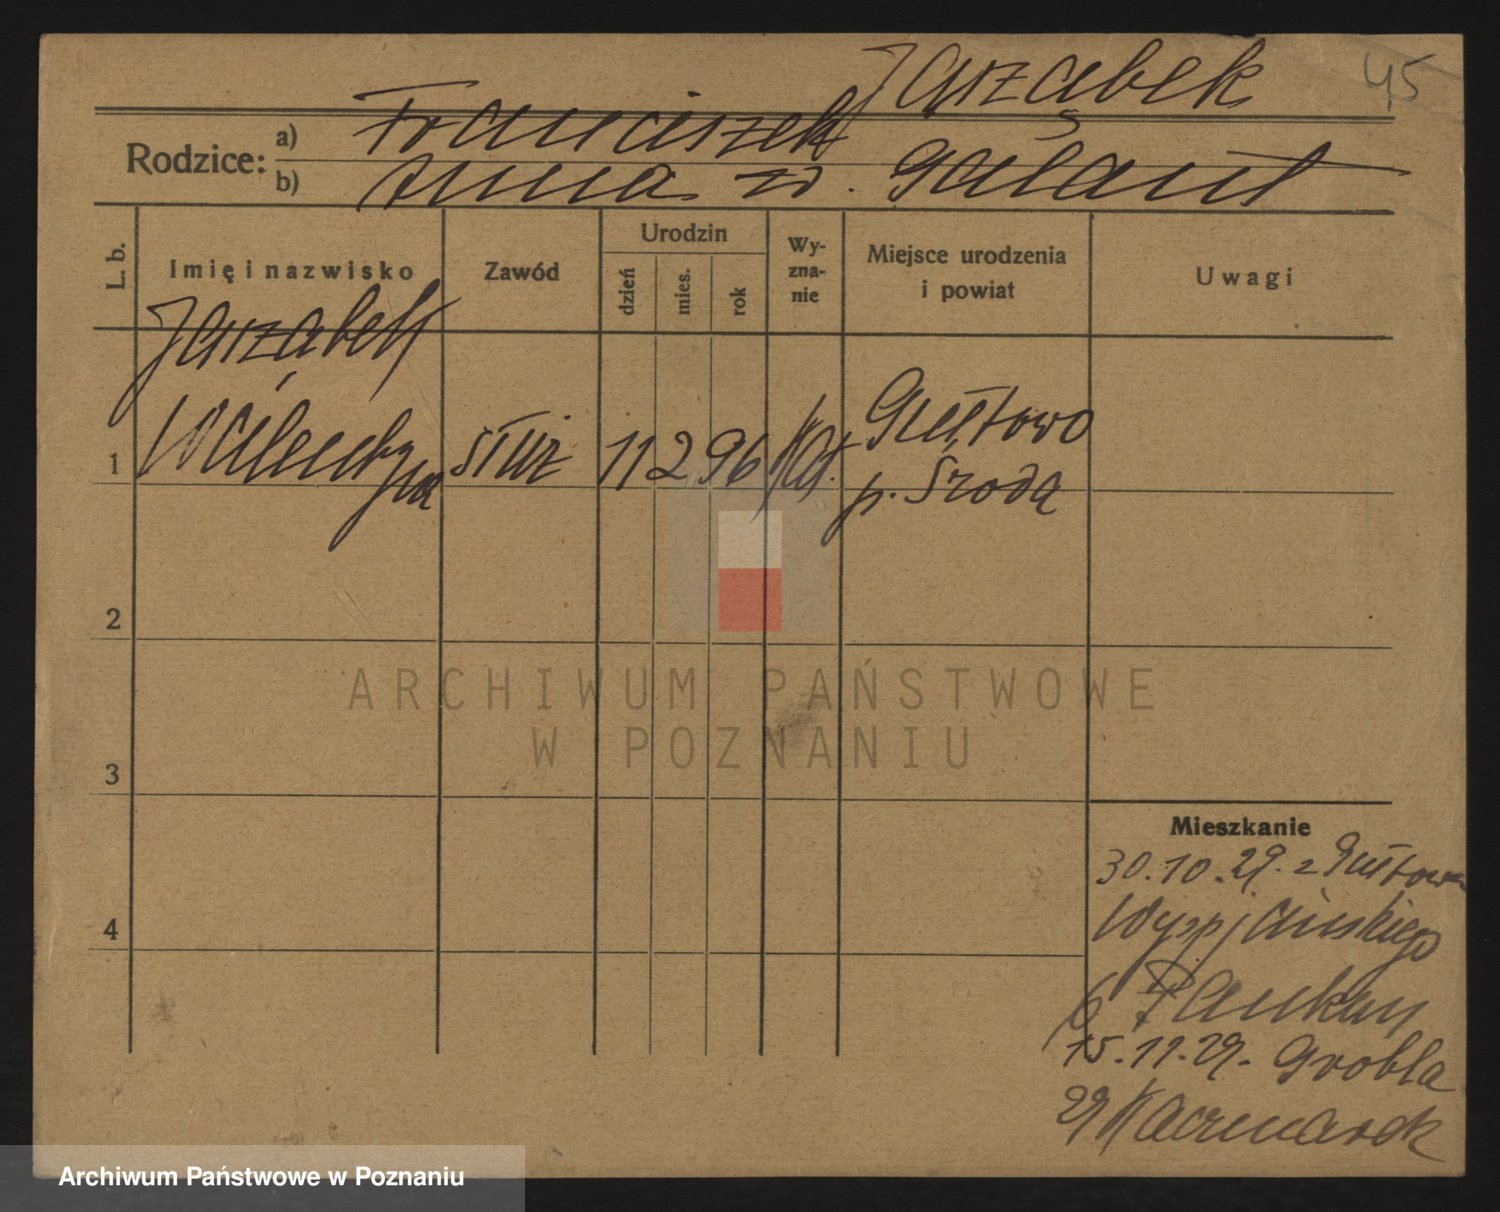 Jarząbek 45
Rodzice: a) Franciszek
b) Anna z d. Gałant
L. b. Imię i nazwisko Zawód Urodzin dzień mies. rok Wyznanie Miejsce urodzenia i powiat Uwagi
Jarząbek
1 Walentyna służ 11 2 96 kat. Gułtowo
p. Środa
2
3
4
Mieszkanie
30.10.29. z Gułtowa
Wyspiańskiego
6
15.11.29. Grobla
29 Kaczmarek
ARCHIWUM PAŃSTWOWE
W POZNANIU
Archiwum Państwowe w Poznaniu